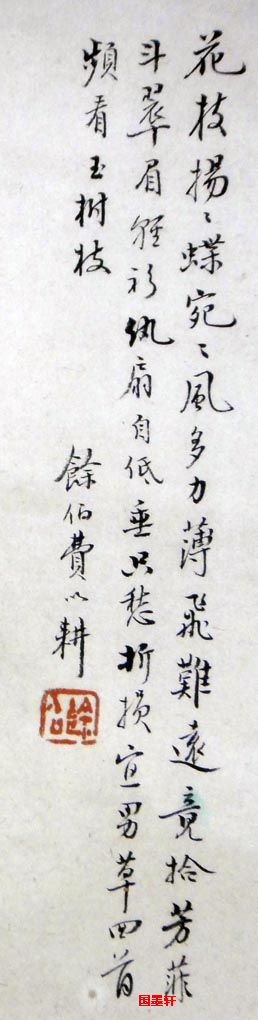 花枝揚〻蝶宛〻風多力薄飛難遠竟拾芳菲
斗翠眉輕衫紈扇自低垂只愁折損宜男草回首
頻看玉樹枝
餘伯費以耕
国墨轩